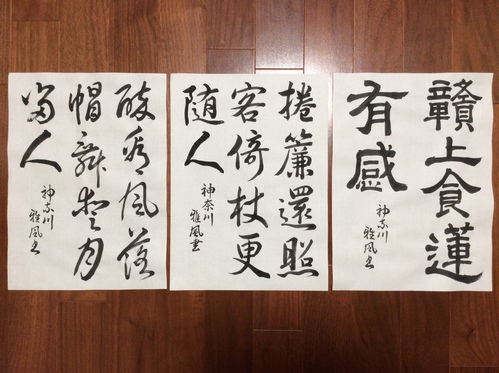 贛上食蓮
有感
神奈川
雅風書
捲簾還照
客倚杖更
随人
神奈川
雅風書
醉看風落
帽舞愛月
留人
神奈川
雅風書